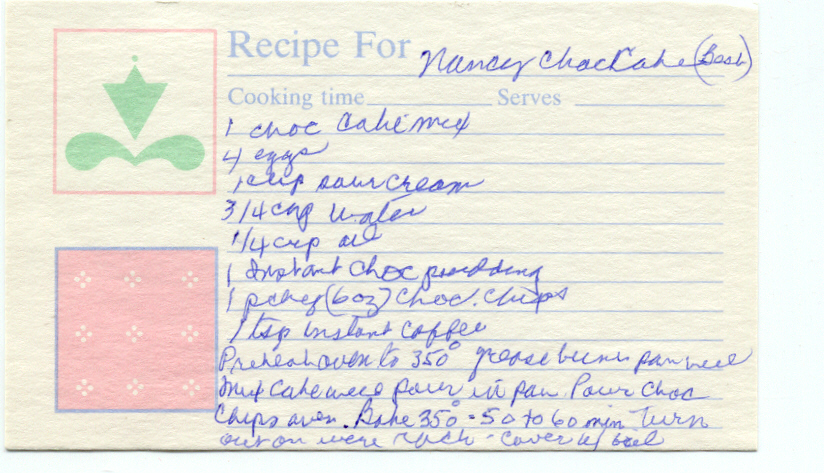 Recipe For Nancy Choc Cake (Best)
Cooking time Serves
1 choc cake mix
4 eggs
1 cup sour cream
3/4 cup water
1/4 cup oil
1 Instant choc pudding
1 pckg (6oz) choc. chips
1 tsp instant coffee
Preheat oven to 350° grease pan well
mix cake well pour in pan Pour choc
chips over. Bake 350° - 50 to 60 min Turn
out on wire rack - cover w/ foil